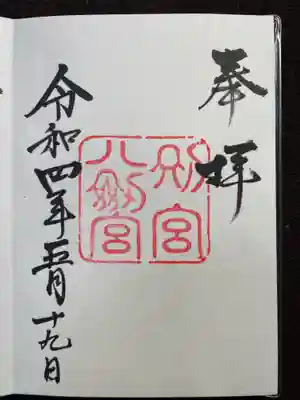 奉拝
別宮
八剱宮
令和四年五月十九日